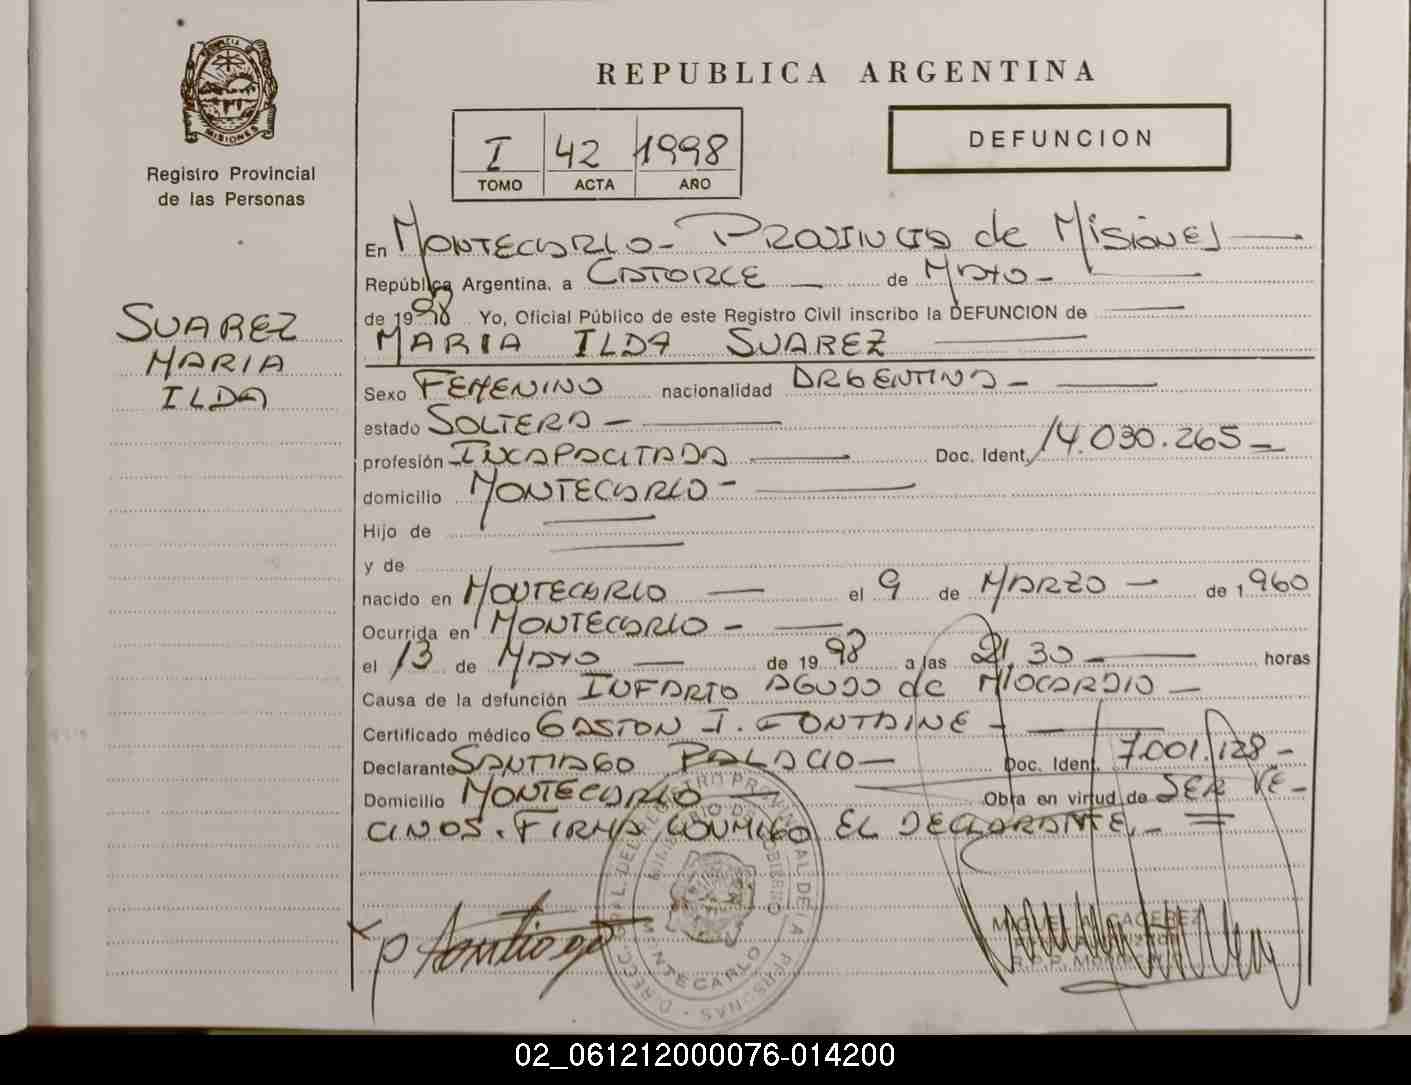 PROVINCIA DE
MISIONES
Registro Provincial
de las Personas
SUAREZ
MARIA
ILDA
REPUBLICA ARGENTINA
DEFUNCION
I 42 1998
TOMO ACTA AÑO
En MONTECARLO - PROVINCIA de MISIONES
República Argentina, a CATORCE de MAYO -
de 1998 Yo, Oficial Público de este Registro Civil inscribo la DEFUNCION de
MARIA ILDA SUAREZ
Sexo FEMENINO nacionalidad ARGENTINA -
estado SOLTERA -
profesión INCAPACITADA Doc. Ident. 14.030.265 -
domicilio MONTECARLO -
Hijo de
y de
nacido en MONTECARLO el 9 de MARZO - de 1960
Ocurrida en MONTECARLO -
el 13 de MAYO de 1998 a las 21,30 horas
Causa de la defunción INFARTO AGUDO de MIOCARDIO -
Certificado médico GASTON I. FONTAINE -
Declarante SANTIAGO PALACIO - Doc. Ident. 7.001.128 -
Domicilio MONTECARLO Obra en virtud de SER VE-
CINOS. FIRMA CONMIGO EL DECLARANTE. -
P Santiago
MINISTERIO DE GOBIERNO
MONTECARLO
02_061212000076-014200